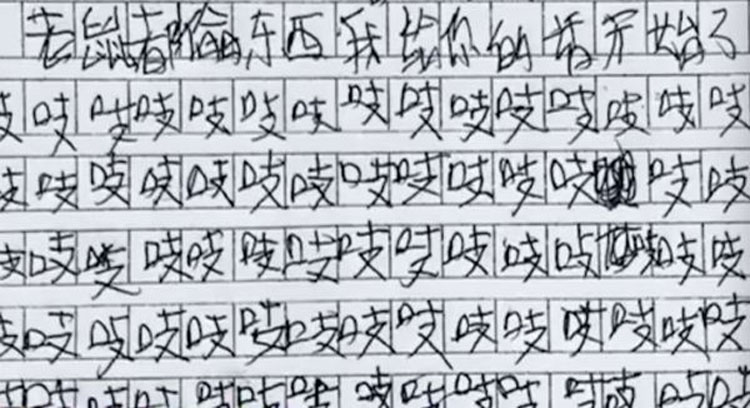 老鼠都偷东西我给你的看开始了
吱吱吱吱吱吱吱吱吱吱吱吱吱吱
吱吱吱吱吱吱吱吱吱吱吱吱吱
吱吱吱吱吱吱吱吱吱吱吱吱吱吱
吱吱吱吱吱吱吱吱吱吱吱吱吱吱